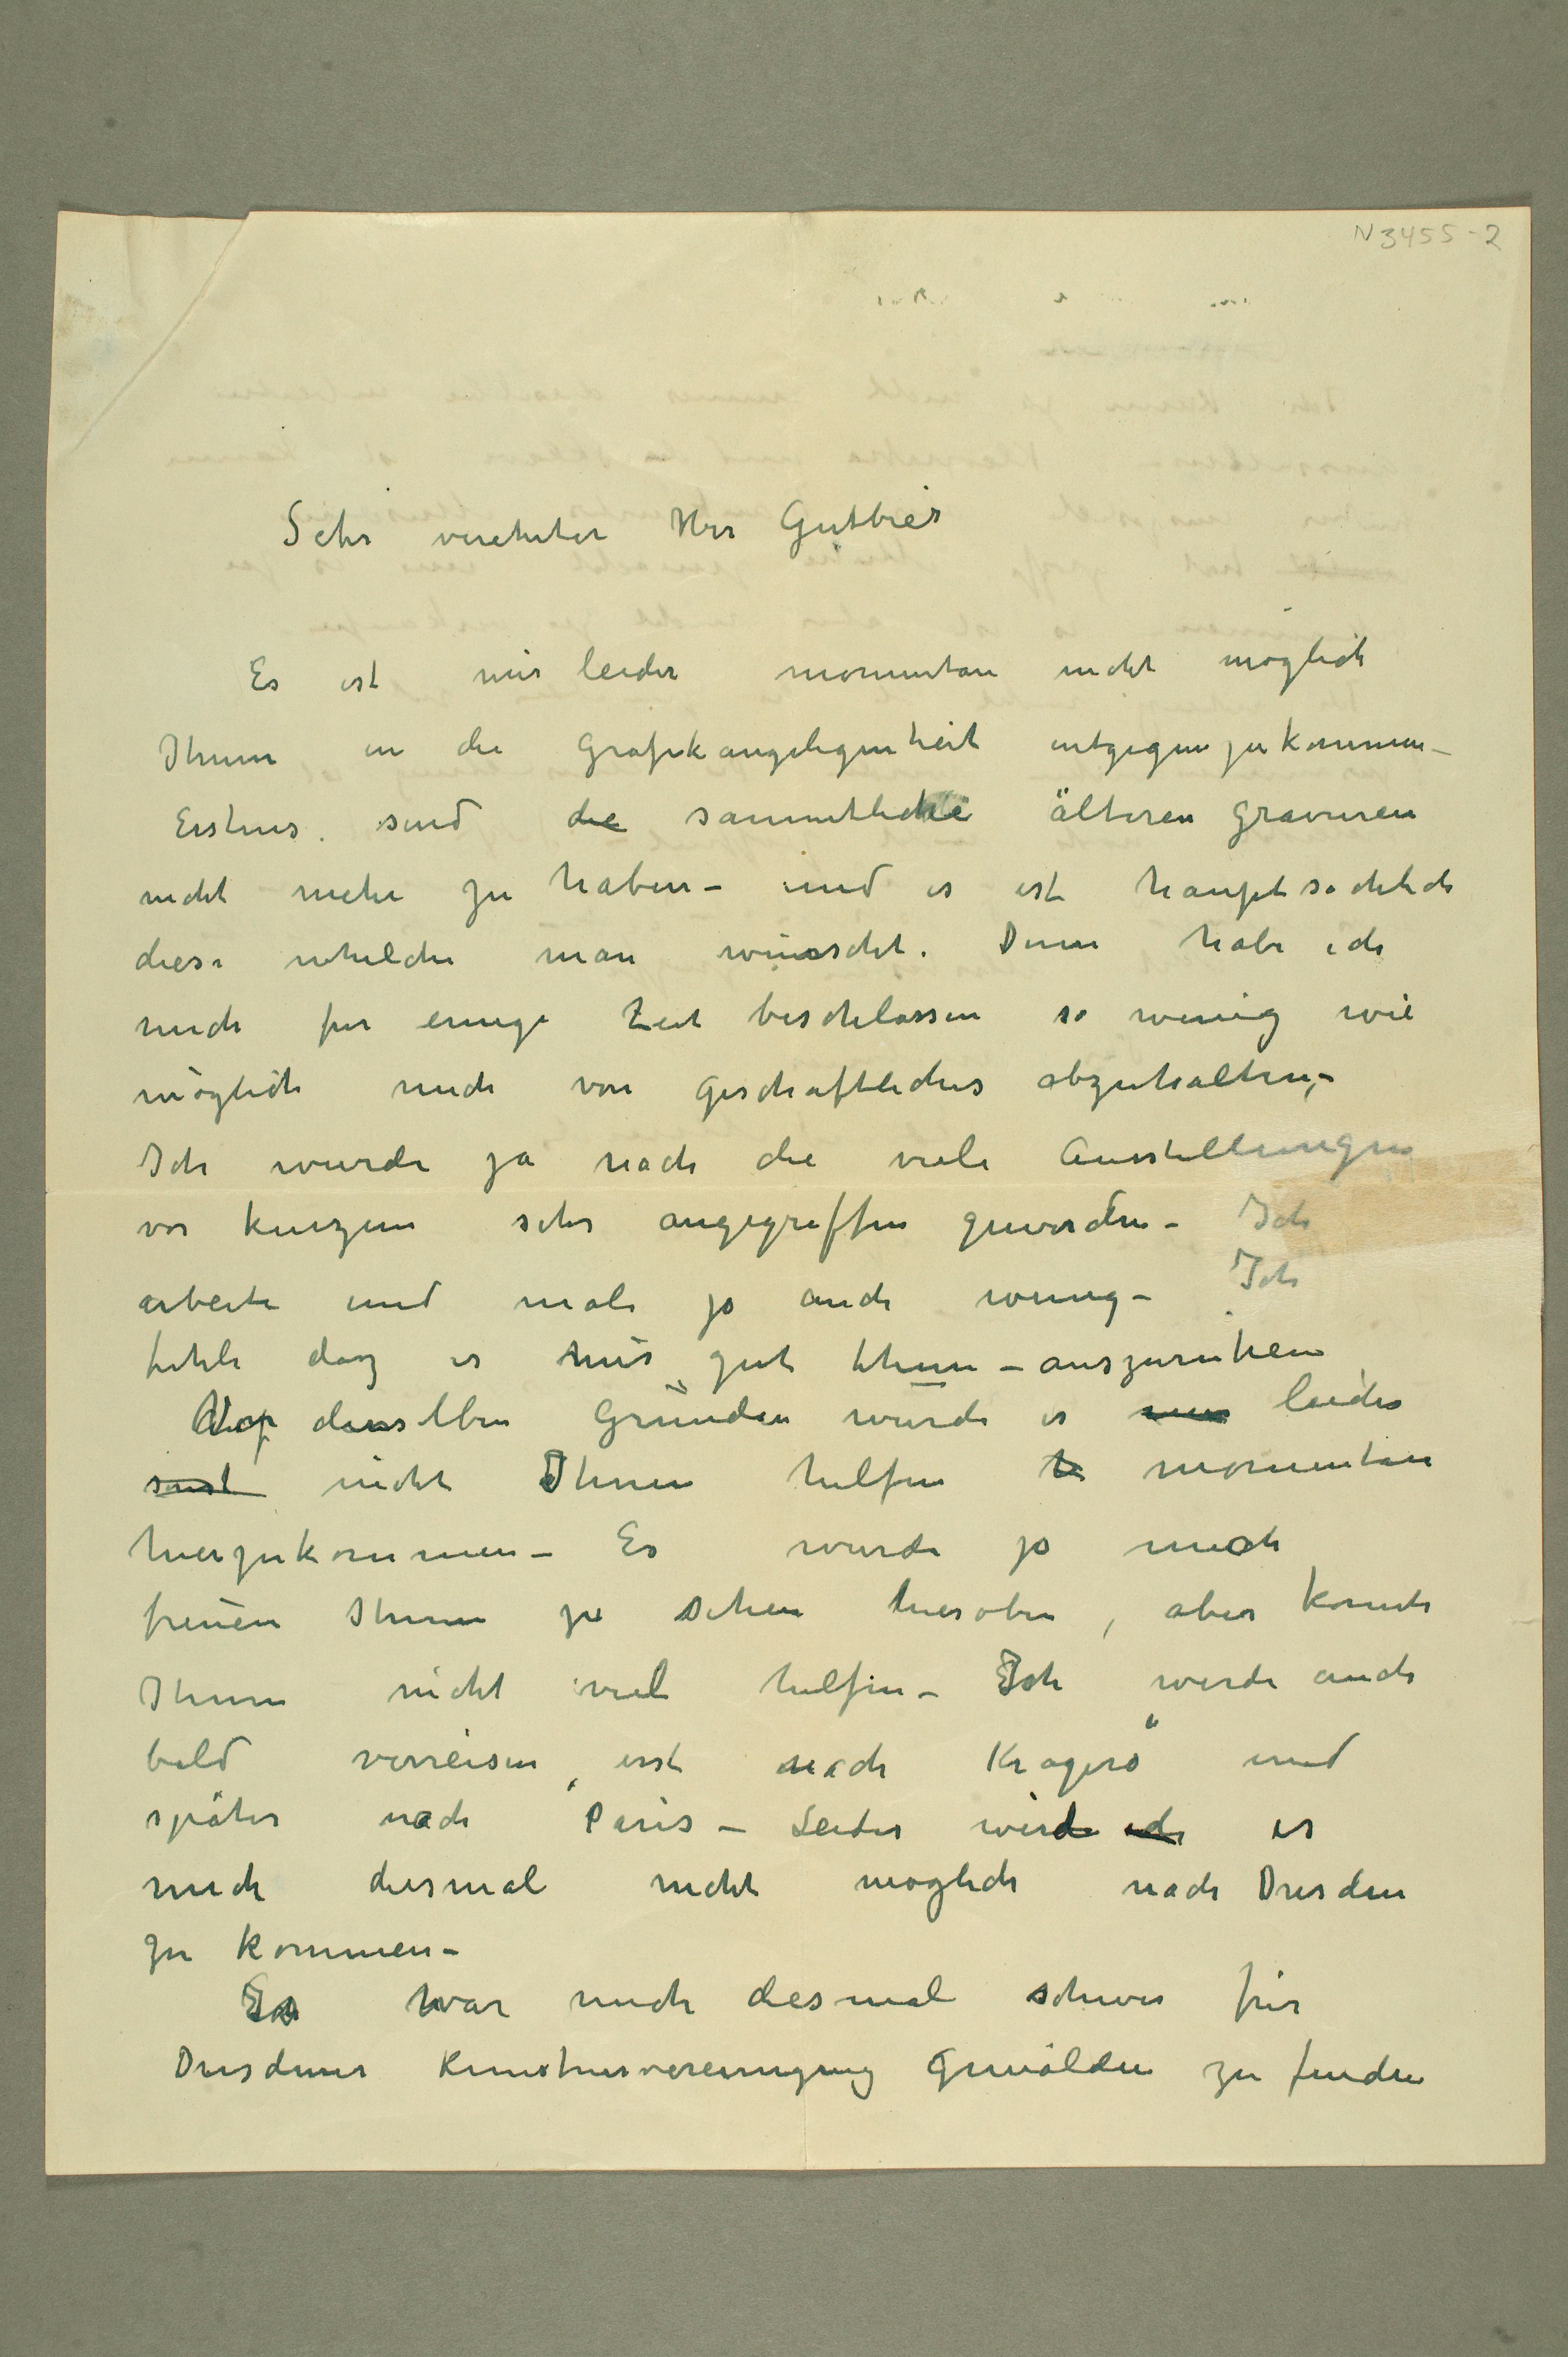 N 3455-2
Sehr verehrter Herr Gutbier
Es ist mir leider momentan nicht möglich
Ihnen in die Grafikangelegenheit entgegenzukommen –
Erstens sind die sammtliche älteren Gravuren
nicht mehr zu haben – und es ist hauptsachlich
diese whelche man wünscht. Denn habe ich
mich fur einige Zeit beschlossen so wenig wie
möglich mich von Geschaftliches abzuhalten,–
Ich wurde ja nach die viele Ausstellungen
vor kurzem sehr angegriffen geworden – Ich
arbeite und male ja auch wenig – Ich
fehle daz es mir gut thun – auszuruhen
denselben Grunden wurde es leider
sonst nicht Ihnen helfen momentan
hierzukommen – Es wurde ja mich
freuen Ihnen zu sehen hieroben, aber konnte
Ihnen nicht viel helfen – Ich werde auch
bald verreisen, erst nach Kragerö und
später nach Paris – Leider wird ich es
mich diesmal nicht moglich nach Dresden
zu kommen –
Es war mich diesmal schwer für
Dresdener Kunstnervereinigung Gemälden zu finden